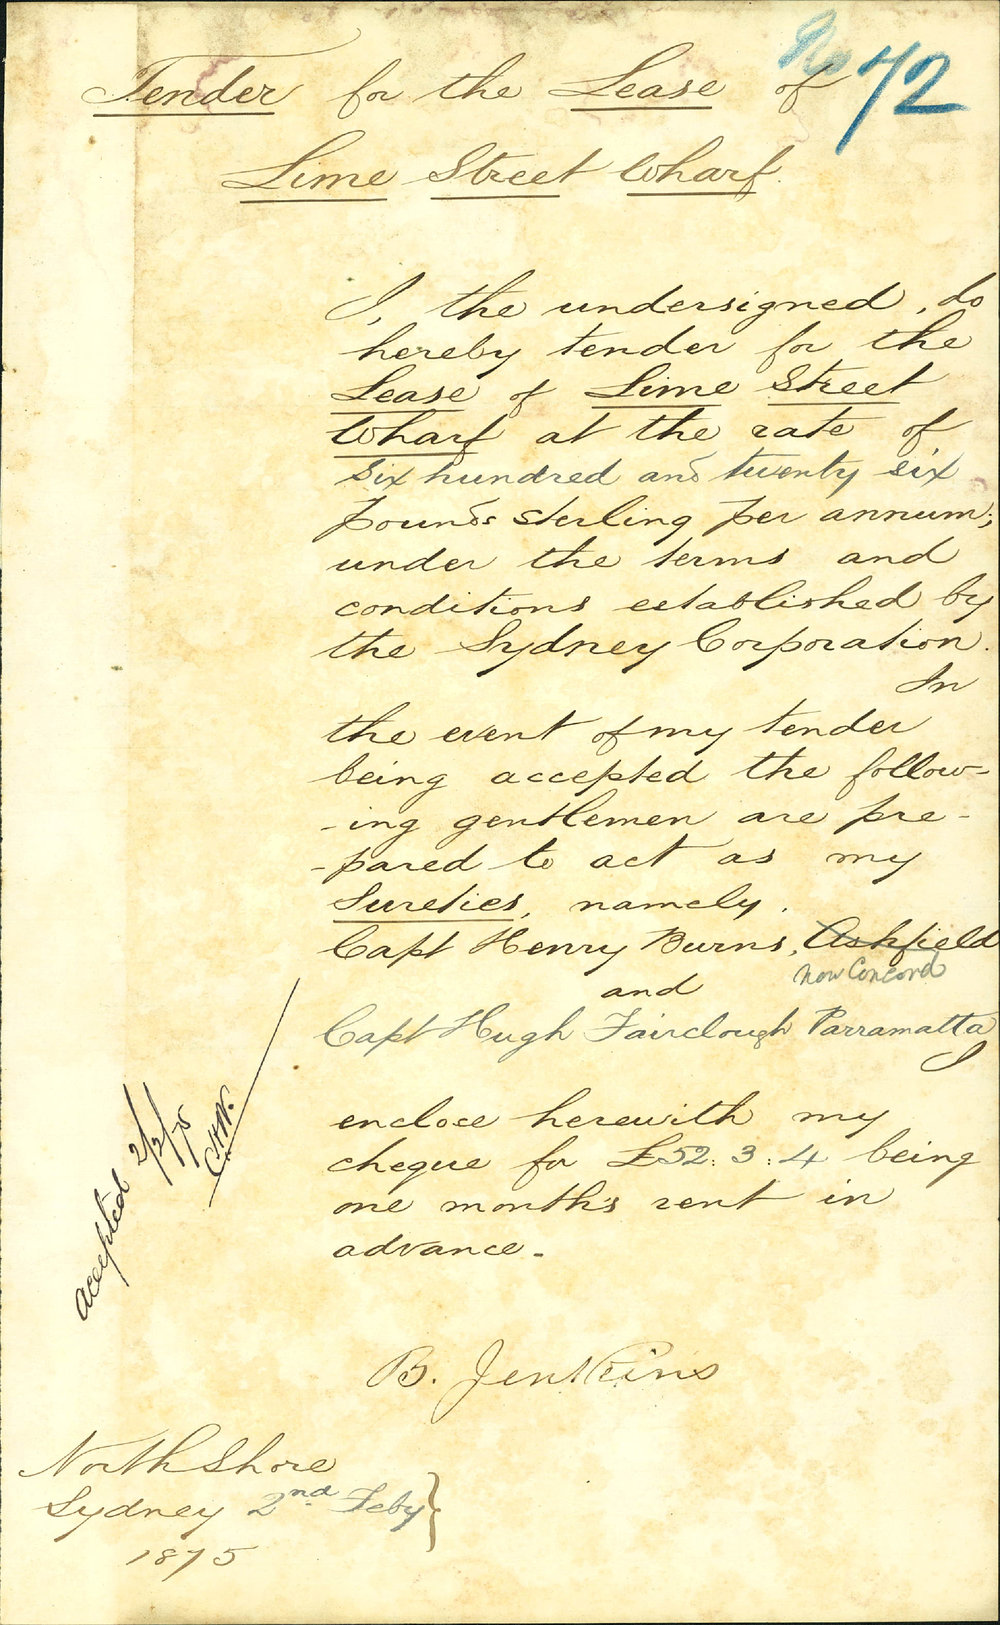 No 72
Tender for the Lease of
Lime Street Wharf.
I, the undersigned, do
hereby tender for the
Lease of Lime Street
Wharf at the rate of
six hundred and twenty six
pounds sterling per annum;
under the terms and
conditions established by
the Sydney Corporation.
In
the event of my tender
being accepted the follow-
-ing gentlemen are pre-
-pared to act as my
Sureties, namely.
Capt Henry Burns, Ashfield
now Concord
and
Capt Hugh Fairclough Parramatta
I
enclose herewith my
cheque for £52:3:4 being
one month's rent in
advance.-
accepted 2/2/75
C.H.W.
B. Jenkins
North Shore
Sydney 2nd Feby
1875